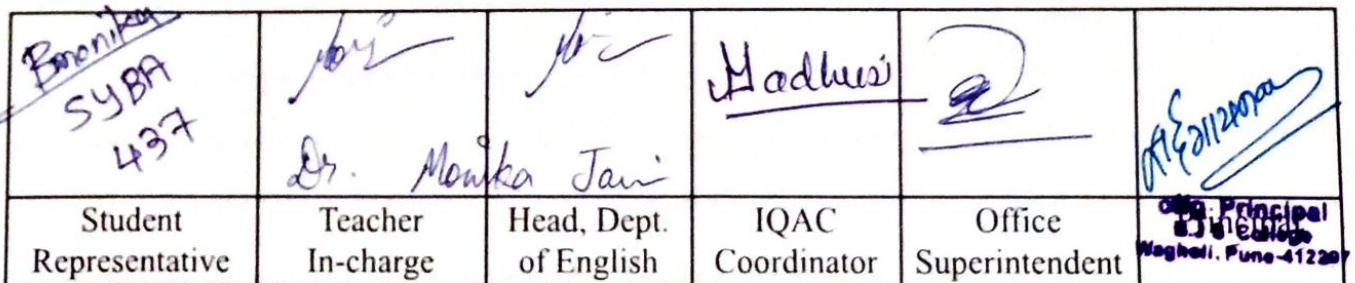 Bmonika
SYBA
437
Dr. Monika Jain
Madhusi
Student Representative
Teacher In-charge
Head, Dept. of English
IQAC Coordinator
Office Superintendent
Principal
Offg. Principal
B.J.S College
Wagholi, Pune-412207